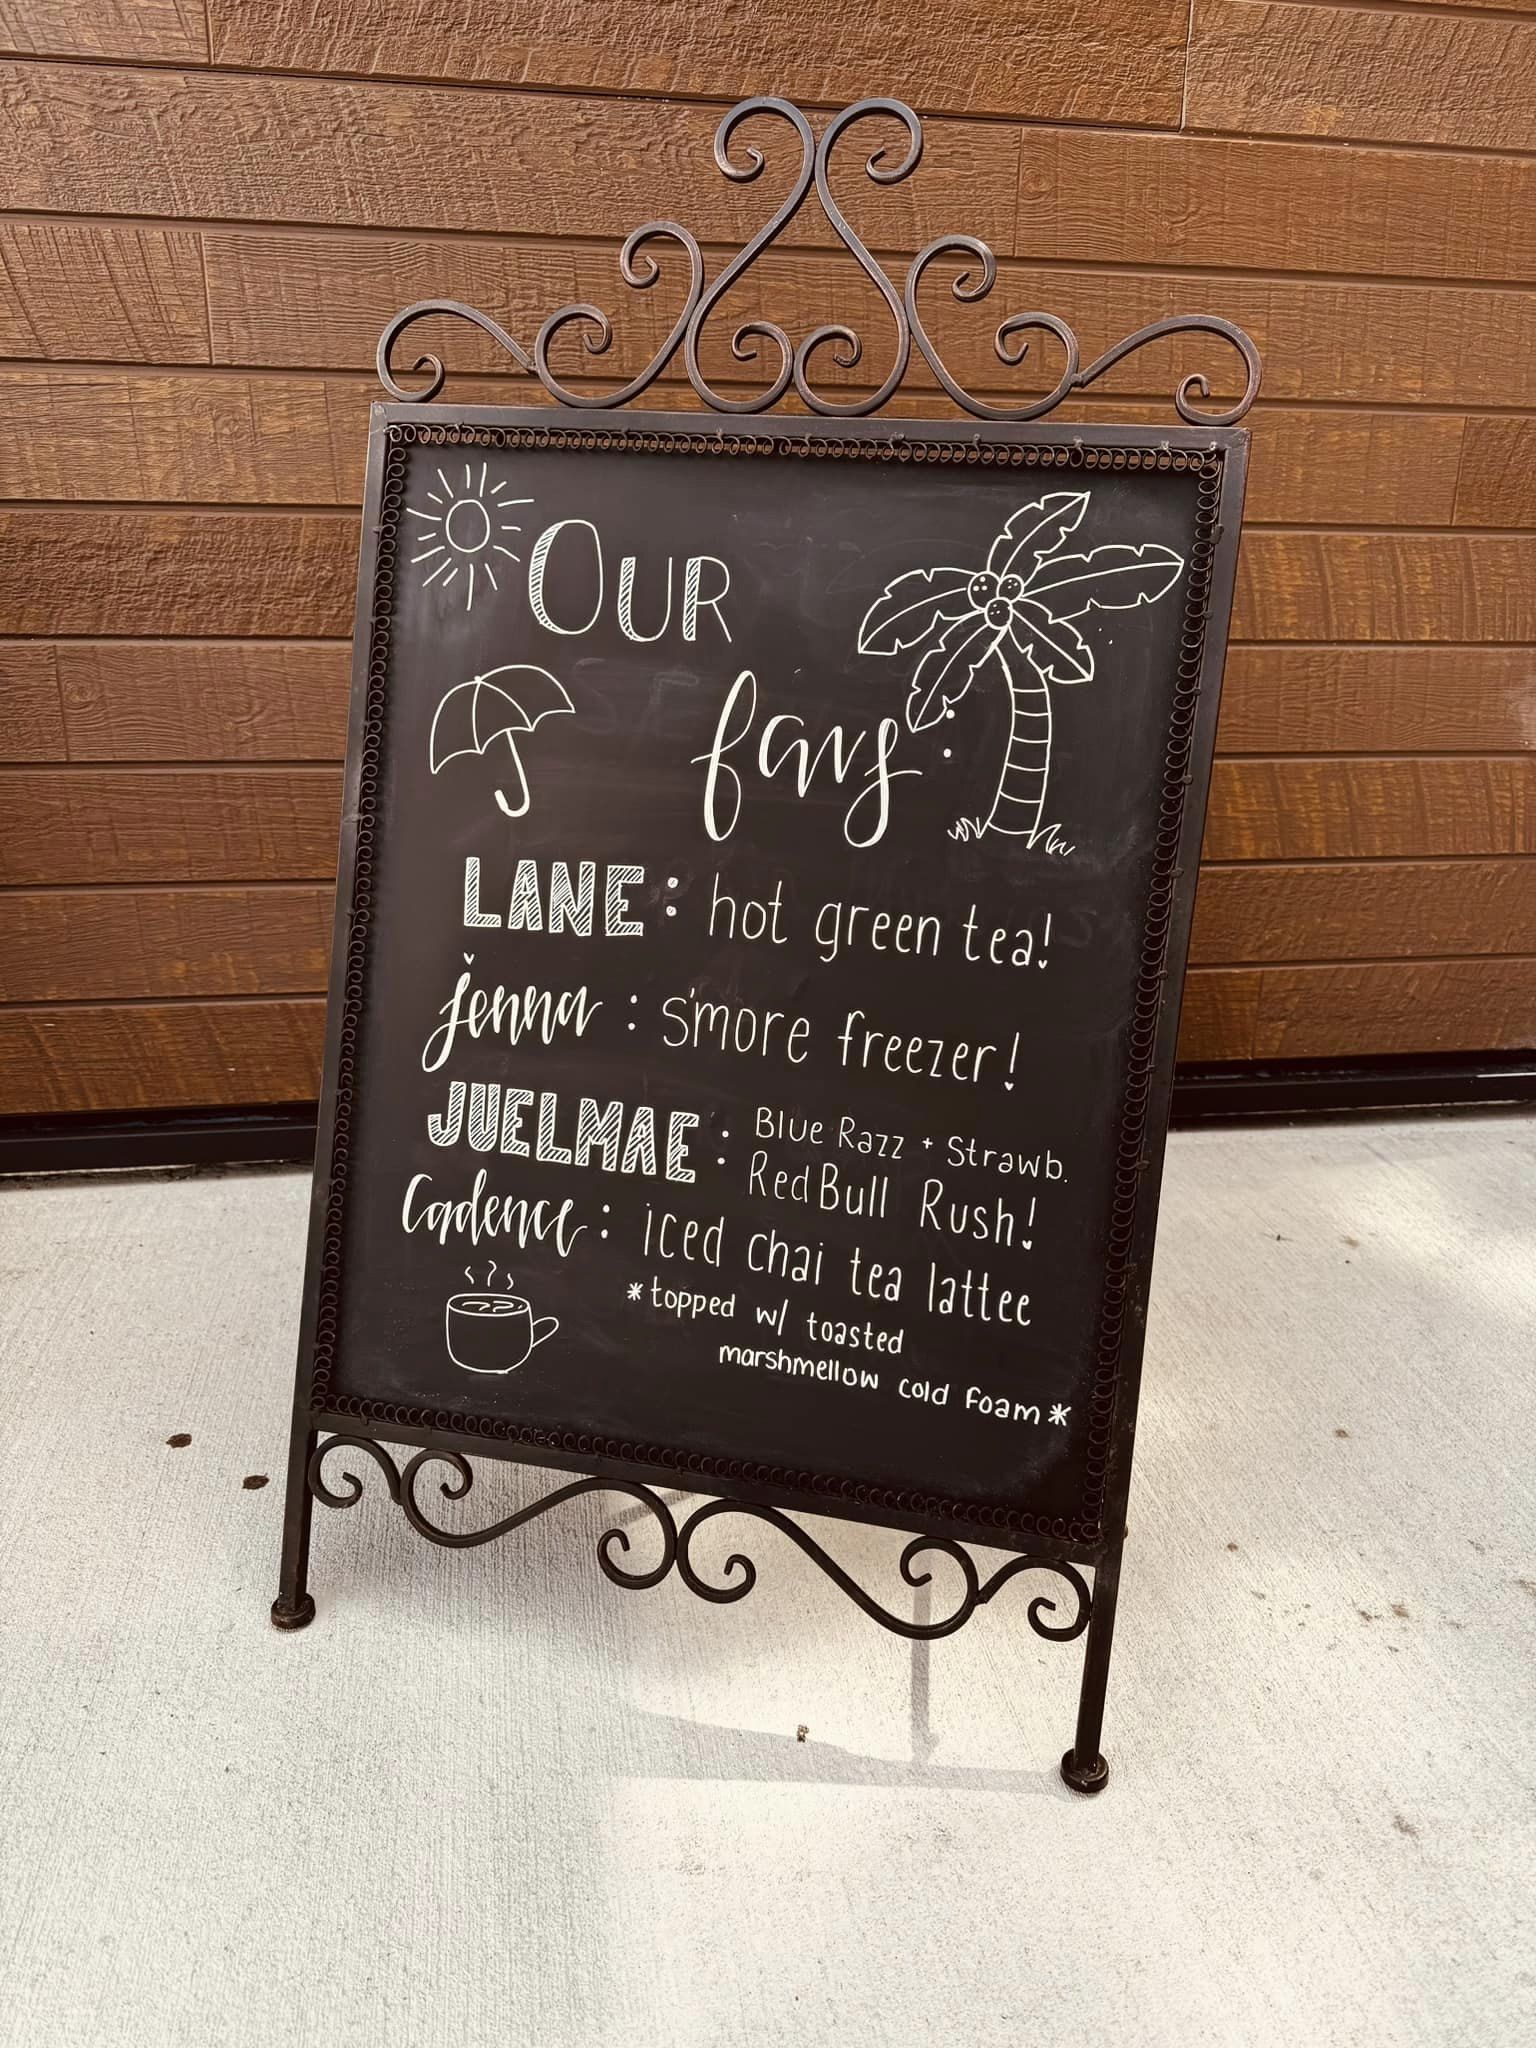 OUR
favs:
LANE: hot green tea!
Jenna: S'more freezer!
JUELMAE: Blue Razz + Strawb.
Red Bull Rush!
Cadence: iced chai tea lattee
*topped w/ toasted
marshmellow cold foam*